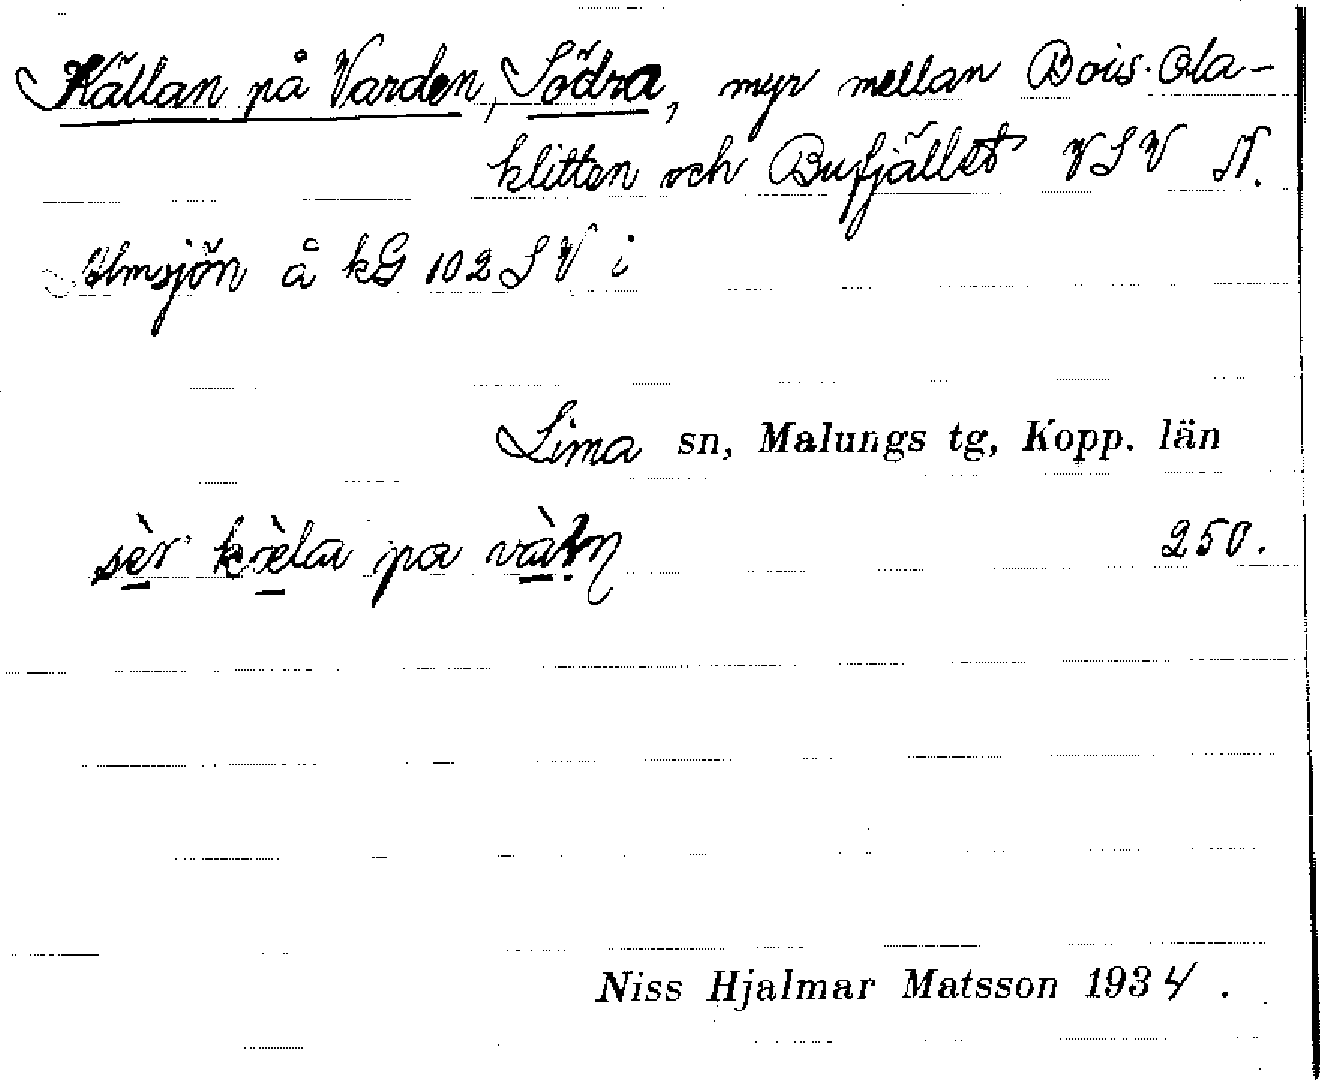 Källan på Varden, Södra, myr mellan Bois-Ola-
klitten och Bufjället VSV N.
Ulmsjön å kG 102 SV i
Lima sn, Malungs tg, Kopp. län
250.
Niss Hjalmar Matsson 1934.